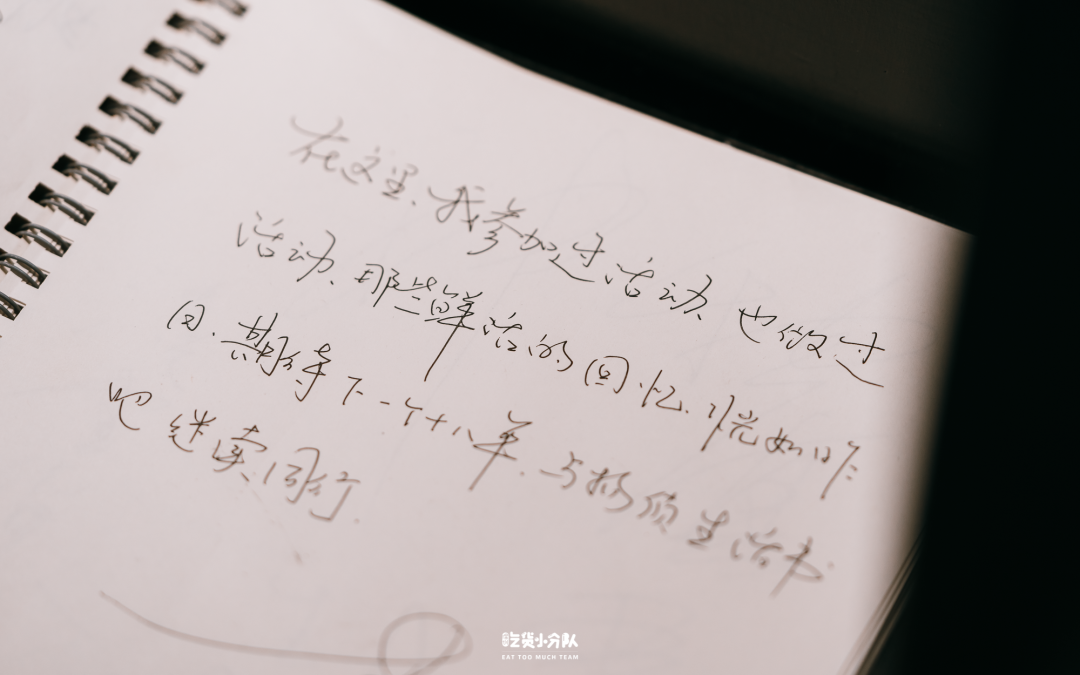 在这里、我参加过活动、也做过
活动、那些鲜活的回忆、恍如昨
日. 期待下一个十八年. 与杨浦生活书
吧 继续同行.
吃货小分队
EAT TOO MUCH TEAM